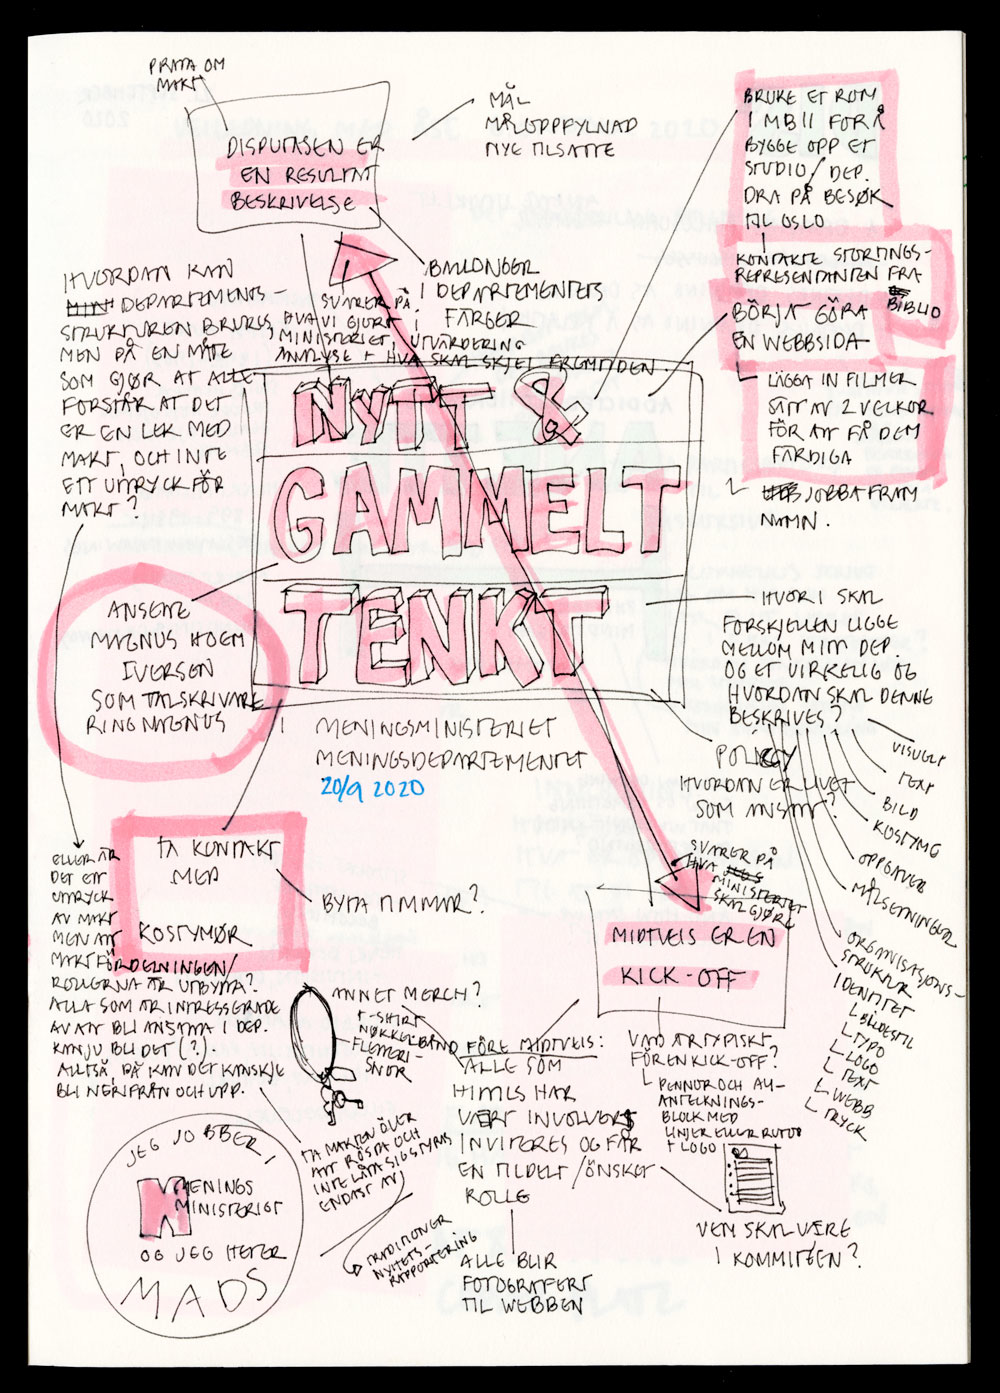 PRATA OM
MAKT
DISPUTASEN ER
EN RESULTAT
BESKRIVELSE
MÅL
MÅLOPPFYLNAD
NYE TILSATTE
BALLONGER
I DEPARTEMENTETS
FÄRGER
SVARER PÅ
HVA VI GJORT I
MINISTERIET, UTVÄRDERING
ANALYSE + HVA SKAL SKJE I FREMTIDEN
BRUKE ET ROM
I MB11 FOR Å
BYGGE OPP ET
STUDIO/DEP.
DRA PÅ BESØK
TIL OSLO
KONTAKTE STORTINGS-
REPRESENTANTEN FRA
BIBLIO
BÖRJA GÖRA
EN WEBBSIDA
LÄGGA IN FILMER
SÄTT AV 2 VECKOR
FÖR ATT FÅ DEM
FÄRDIGA
JOBBA FRAM
NAMN.
HVORDAN KAN
DEPARTEMENTS-
STRUKTUREN BRUKES,
MEN PÅ EN MÅTE
SOM GJØR AT ALLE
FORSTÅR AT DET
ER EN LEK MED
MAKT, OCH INTE
ETT UTTRYCK FÖR
MAKT?
NYTT &
GAMMELT
TENKT
ANSETTE
MAGNUS HOEM
IVERSEN
SOM TALSKRIVARE
RING MAGNUS
MENINGSMINISTERIET
MENINGSDEPARTEMENTET
20/9 2020
HVOR I SKAL
FORSKJELLEN LIGGE
MELLOM MITT DEP.
OG ET VIRKELIG OG
HVORDAN SKAL DENNE
BESKRIVES?
VISUELT
TEXT
BILD
KOSTYME
OPPGAVER
MÅLSETNINGER
ORGANISASJONS-
STRUKTUR
IDENTITET
BILDESTIL
TYPO
LOGO
TEXT
WEBB
TRYCK
POLICY
HVORDAN ER LIVET
SOM ANSATT?
SVARER PÅ
HVA
MINISTERIET
SKAL GJØRE
MIDTVEIS ER EN
KICK-OFF
TA KONTAKT
MED
KOSTYMØR
BYTA TIMMAR?
ELLER ÄR
DET ETT
UTTRYCK
AV MAKT
MEN ATT
MAKTFÖRDELNINGEN/
ROLLERNA ÄR UTBYTTA?
ALLA SOM ÄR INTRESSERADE
AV ATT BLI ANSATTA I DEP.
KAN JU BLI DET (?).
ALLTSÅ, DÅ KAN DET KANSKJE
BLI NERIFRÅN OCH UPP.
ANNET MERCH?
T-SHIRT
NØKKELBÅND
FLEMERI-
SNOR
FÖRE MIDTVEIS:
ALLE SOM
HITTILS HAR
VÆRT INVOLVERT
INVITERES OG FÅR
EN TILDELT/ÖNSKET
ROLLE
ALLE BLIR
FOTOGRAFERT
TIL WEBBEN
VAD ÄR TYPISKT
FÖR EN KICK-OFF?
PENNOR OCH A4-
ANTECKNINGS-
BLOCK MED
LINJER ELLER RUTOR
+ LOGO
VEM SKAL VÆRE
I KOMMITÉEN?
TA MAKTEN ÖVER
ATT RÖSTA OCH
INTE LÅTA SIG STYRAS
ENDAST AV
TRADITIONER
NYHETS-
RAPPORTERING
JEG JOBBER I
MENINGS
MINISTERIET
OG JEG HETER
MADS